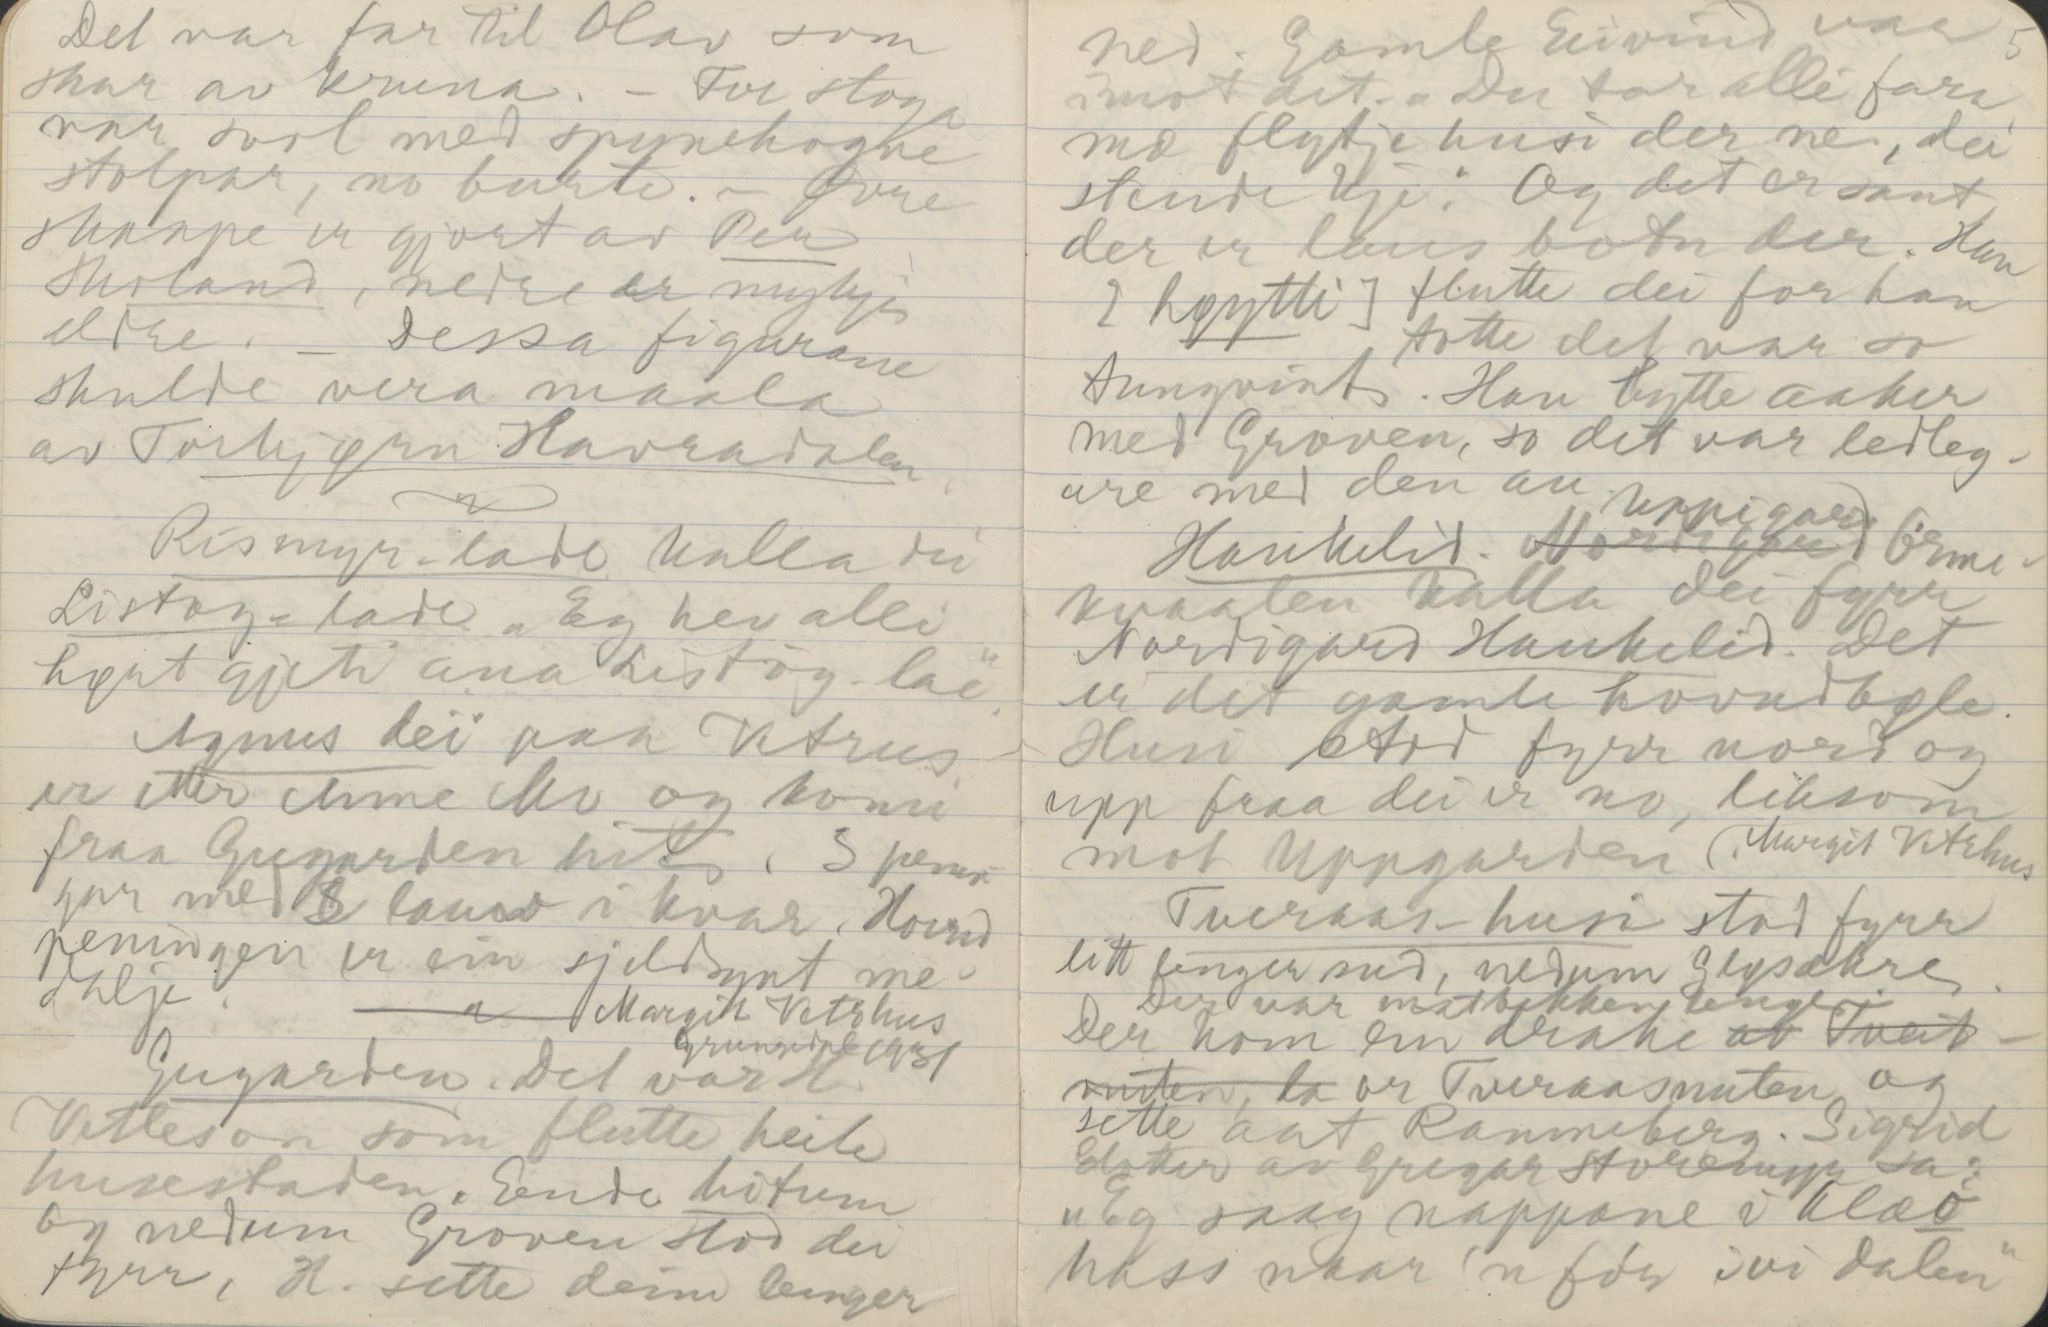 Det var far til Olav som
skar av kruna. – For stoga
var svol med spunehogne
stolpar, no burte. – Øvre
skaape er gjort av Per
Skoland, nedre er mykje
eldre. – Dessa figurane
skulde vera maala
av Torbjørn Havradalen.
Rismyr-lade kalla dei
Listog-lade. „Eg hev alli
høyrt gjeti ana Listog-lae"
Agnus dei paa Vetrus
er etter Anne Mo og komi
fraa Gugarden hit. 3 penin-
gar med 8 lauv i kvar. Hovud
peningen er ein sjeldsynt me-
dalje.
Margit Vetrhus
Grungedal 1931
Gugarden. Det var H.
Vetleson som flutte heile
husestaden. Eende hitum
og nedum Groven stod dei
fyrr, H. sette deim lenger
5
ned. Gamle Eivind var
imot det. „Du tar alli fara
mæ flytje husi der ne, dei
stende kje". Og det er sant
der er laus botn der. Han
[høytti] flutte dei for han
totte det var so
tungvint. Han bytte aaker
med Groven, so det var ledleg-
are med den au.
Uppigard
Haukelid. Nordigard Orme-
kvaalen kalla dei fyrr
Nordigard Haukelid. Det
er det gamle hovudbøle.
Husi stod fyrr nord og
upp fraa dei er no, liksom
mot Uppgarden (Margit Vetrhus
Tveraas-husi stod fyrr
litt lenger sud, nedum
Der var matbekken lenge
Der kom ein drake av Tveit-
nuten, la or Tveraasnuten og
sette aat Ranneberg. Sigrid
av Gregar sa:
„Eg saag nappane i klæo
hass naar 'n for ivi dalen"